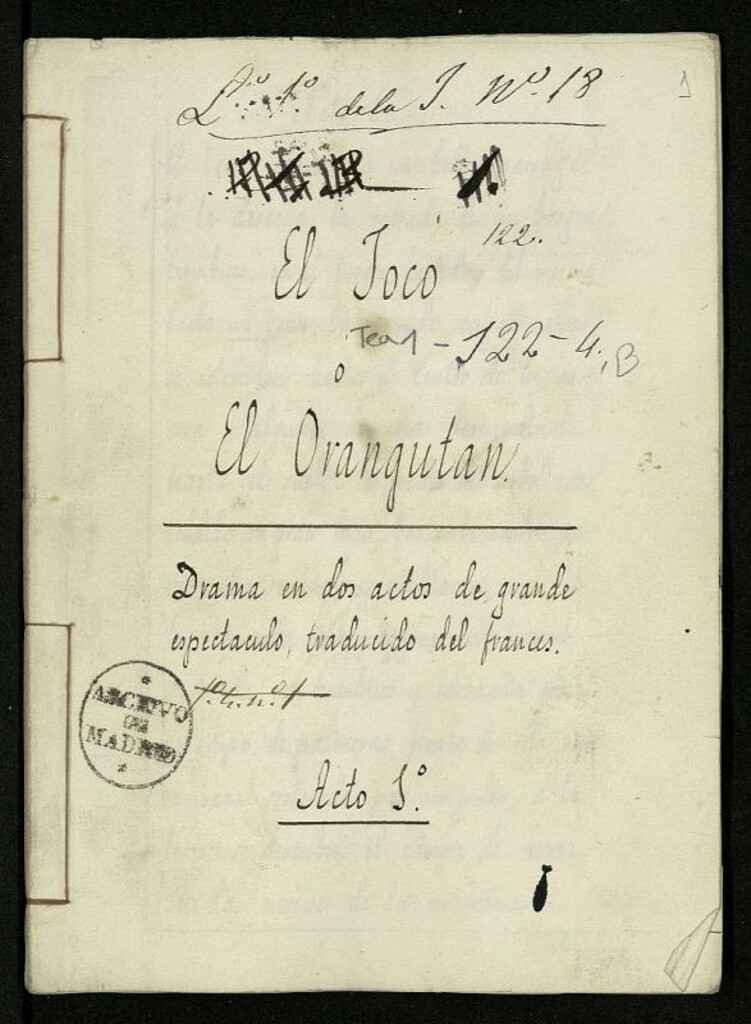 1
L.º 1.º de la J. Nº. 18
122.
El Jocó
Tea 1-122-4, B
o
El Orangutan
Drama en dos actos de grande
espectaculo, traducido del frances.
ARCHIVO
DE
MADRID
Acto 1.º